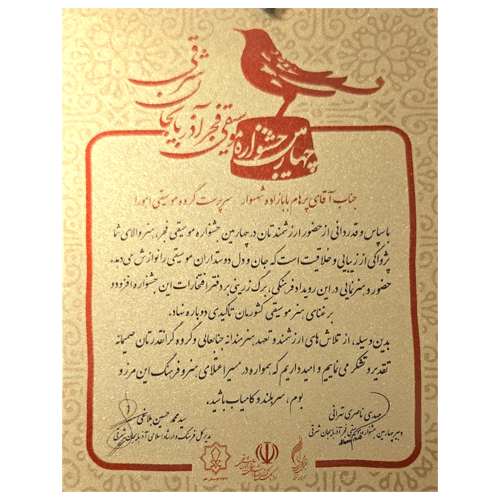 چهارمین جشنواره موسیقی فجر آذربایجان شرقی
جناب آقای پرهام بابازاده شهسوار سرپرست گروه موسیقی اهورا
باسپاس و قدردانی از حضور ارزشمندتان در چهارمین جشنواره موسیقی فجر، هنر والای شما
پژواکی از زیبایی و خلاقیت است که جان و دل دوستداران موسیقی را نوازش می‌دهد.
حضور و هنرنمایی در این رویداد فرهنگی، برگ زرینی بر دفتر افتخارات این جشنواره افزود و
بر غنای هنر موسیقی کشورمان تاکیدی دوباره نهاد.
بدین وسیله، از تلاش های ارزشمند و تعهد هنرمندانه جنابعالی و گروه گرانقدرتان صمیمانه
تقدیر و تشکر می نماییم و امید داریم که همواره در مسیر اعتلای هنر و فرهنگ این مرز و
بوم، سربلند و کامیاب باشید.
مهدی ناصری تهرانی
دبیر چهارمین جشنواره موسیقی فجر آذربایجان شرقی
سید محمد حسین بلاغی
مدیرکل فرهنگ و ارشاد اسلامی آذربایجان شرقی